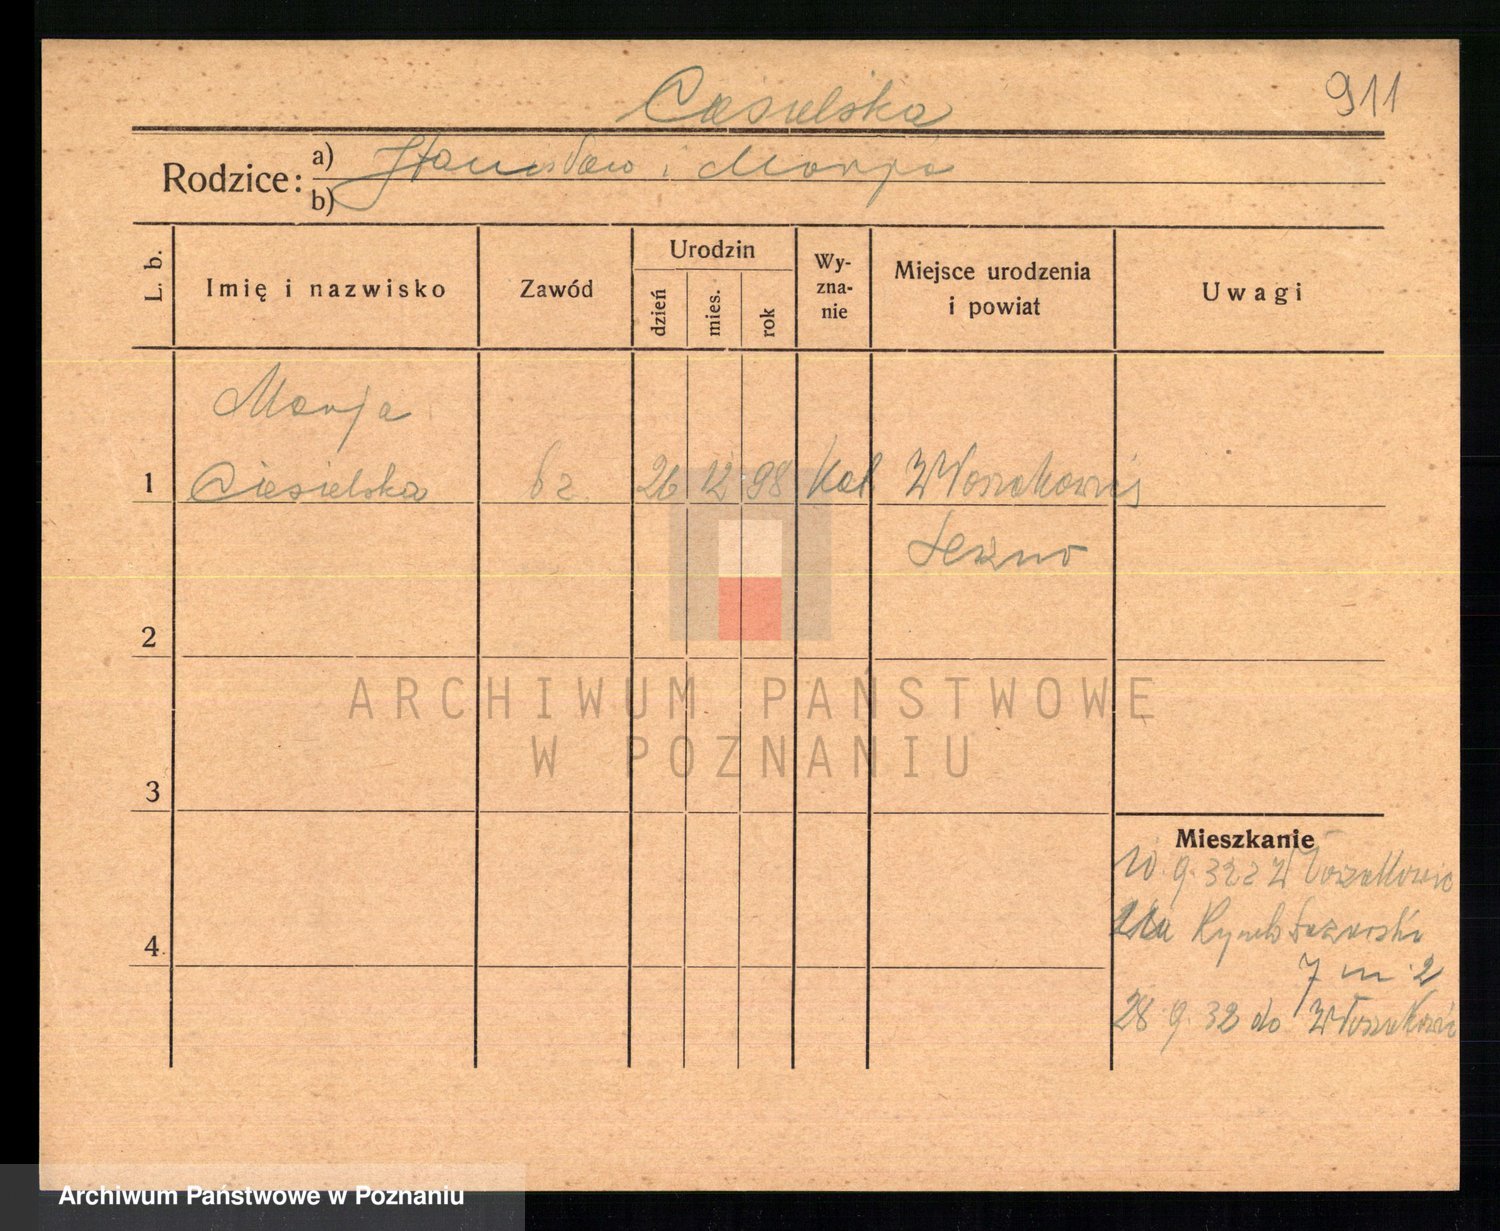 Ciesielska
911
Rodzice:
a) Stanisław i Marya
b)
L. b.
Imię i nazwisko
Zawód
Urodzin
dzień
mies.
rok
Wy-
zna-
nie
Miejsce urodzenia
i powiat
Uwagi
Marja
1 Ciesielska bz. 26 12 98 Kat Włoszakowice
Leszno
2
3
4
Mieszkanie
10 9. 32 z Włoszakowic
Rynek Łazarski
7 m 2
28 9. 32 do Włoszakowic
ARCHIWUM PAŃSTWOWE
W POZNANIU
Archiwum Państwowe w Poznaniu